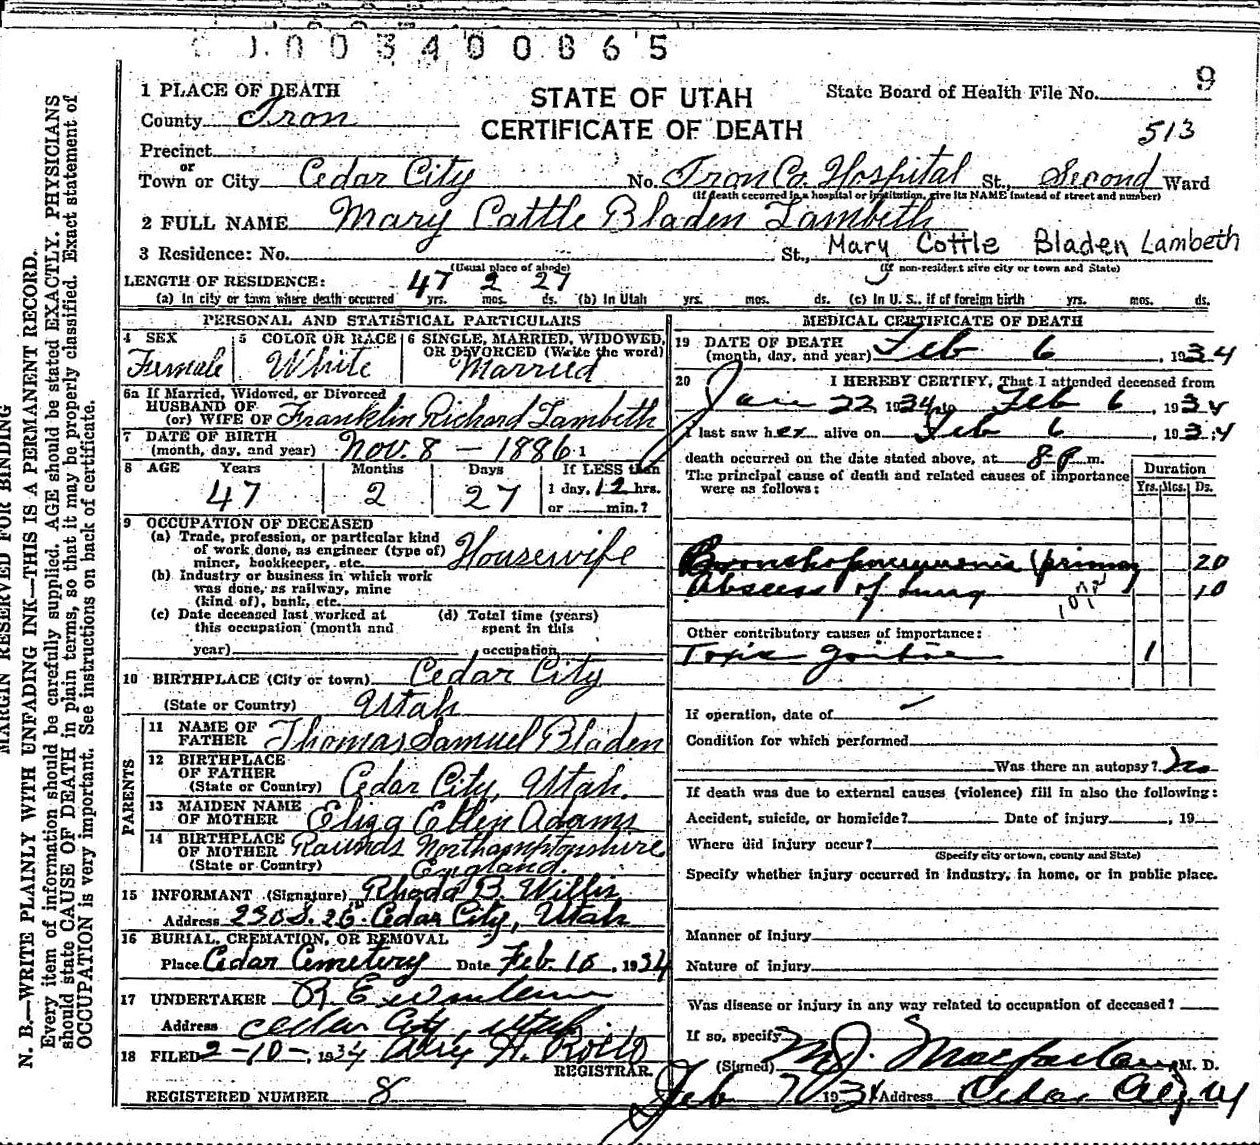 0 0 0 3 4 0 0 8 6 5
9
1 PLACE OF DEATH
STATE OF UTAH
State Board of Health File No.
County Iron
CERTIFICATE OF DEATH
513
Precinct
or
Town or City Cedar City No. Iron Co. Hospital St., Second Ward
(If death occurred in a hospital or institution, give its NAME instead of street and number)
2 FULL NAME Mary Cattle Bladen Lambeth
3 Residence: No. St., Mary Cottle Bladen Lambeth
(Usual place of abode) (If non-resident give city or town and State)
LENGTH OF RESIDENCE: 47 2 27
(a) In city or town where death occurred yrs. mos. ds. (b) In Utah yrs. mos. ds. (c) In U. S., if of foreign birth yrs. mos. ds.
PERSONAL AND STATISTICAL PARTICULARS
4 SEX
Female
5 COLOR OR RACE
White
6 SINGLE, MARRIED, WIDOWED,
OR DIVORCED (Write the word)
Married
6a If Married, Widowed, or Divorced
HUSBAND OF
(or) WIFE OF Franklin Richard Lambeth
7 DATE OF BIRTH
(month, day, and year) Nov. 8 - 1886
8 AGE Years Months Days If LESS than
47 2 27 1 day, 12 hrs.
or min.?
9 OCCUPATION OF DECEASED
(a) Trade, profession, or particular kind
of work done, as engineer (type of)
miner, bookkeeper, etc. Housewife
(b) Industry or business in which work
was done, as railway, mine
(kind of), bank, etc.
(c) Date deceased last worked at
this occupation (month and
year)
(d) Total time (years)
spent in this
occupation
10 BIRTHPLACE (City or town) Cedar City
(State or Country) Utah
PARENTS
11 NAME OF
FATHER Thomas Samuel Bladen
12 BIRTHPLACE
OF FATHER
(State or Country) Cedar City, Utah.
13 MAIDEN NAME
OF MOTHER Eliza Ellen Adams
14 BIRTHPLACE
OF MOTHER Raunds Northamptonshire
(State or Country) England.
15 INFORMANT (Signature) Rhoda B. Willis
Address 230 S. 2 Cedar City, Utah
16 BURIAL, CREMATION, OR REMOVAL
Place Cedar Cemetery Date Feb. 10, 1934
17 UNDERTAKER
Address Cedar City, Utah
18 FILED 2-10-, 1934
REGISTRAR.
REGISTERED NUMBER 8
MEDICAL CERTIFICATE OF DEATH
19 DATE OF DEATH
(month, day, and year) Feb 6, 1934
20 I HEREBY CERTIFY, That I attended deceased from
Jan 22 1934, to Feb 6, 1934
I last saw her alive on Feb 6, 1934
death occurred on the date stated above, at 8 P m.
The principal cause of death and related causes of importance
were as follows:
Duration
Yrs. Mos. Ds.
Bronchopneumonia (primary 20
Abscess of lung 10
Other contributory causes of importance:
Toxic goitre 1
If operation, date of
Condition for which performed
Was there an autopsy? No
If death was due to external causes (violence) fill in also the following:
Accident, suicide, or homicide? Date of injury , 19
Where did injury occur?
(Specify city or town, county and State)
Specify whether injury occurred in industry, in home, or in public place.
Manner of injury
Nature of injury
Was disease or injury in any way related to occupation of deceased?
If so, specify
(Signed) M. J. Macfarlane, M. D.
Feb 7 1934 Address Cedar City, Ut
MARGIN RESERVED FOR BINDING
N. B.—WRITE PLAINLY WITH UNFADING INK—THIS IS A PERMANENT RECORD.
Every item of information should be carefully supplied. AGE should be stated EXACTLY. PHYSICIANS
should state CAUSE OF DEATH in plain terms, so that it may be properly classified. Exact statement of
OCCUPATION is very important. See instructions on back of certificate.